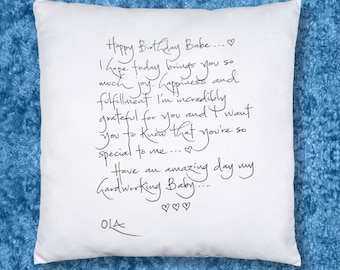 Happy Birthday Babe... ♡
I hope today brings you so
much joy, happiness and
fulfillment I'm incredibly
grateful for you and I want
you to know that you're so
special to me... ♡
Have an amazing day my
Gardworking Baby...
♡♡♡
OLA